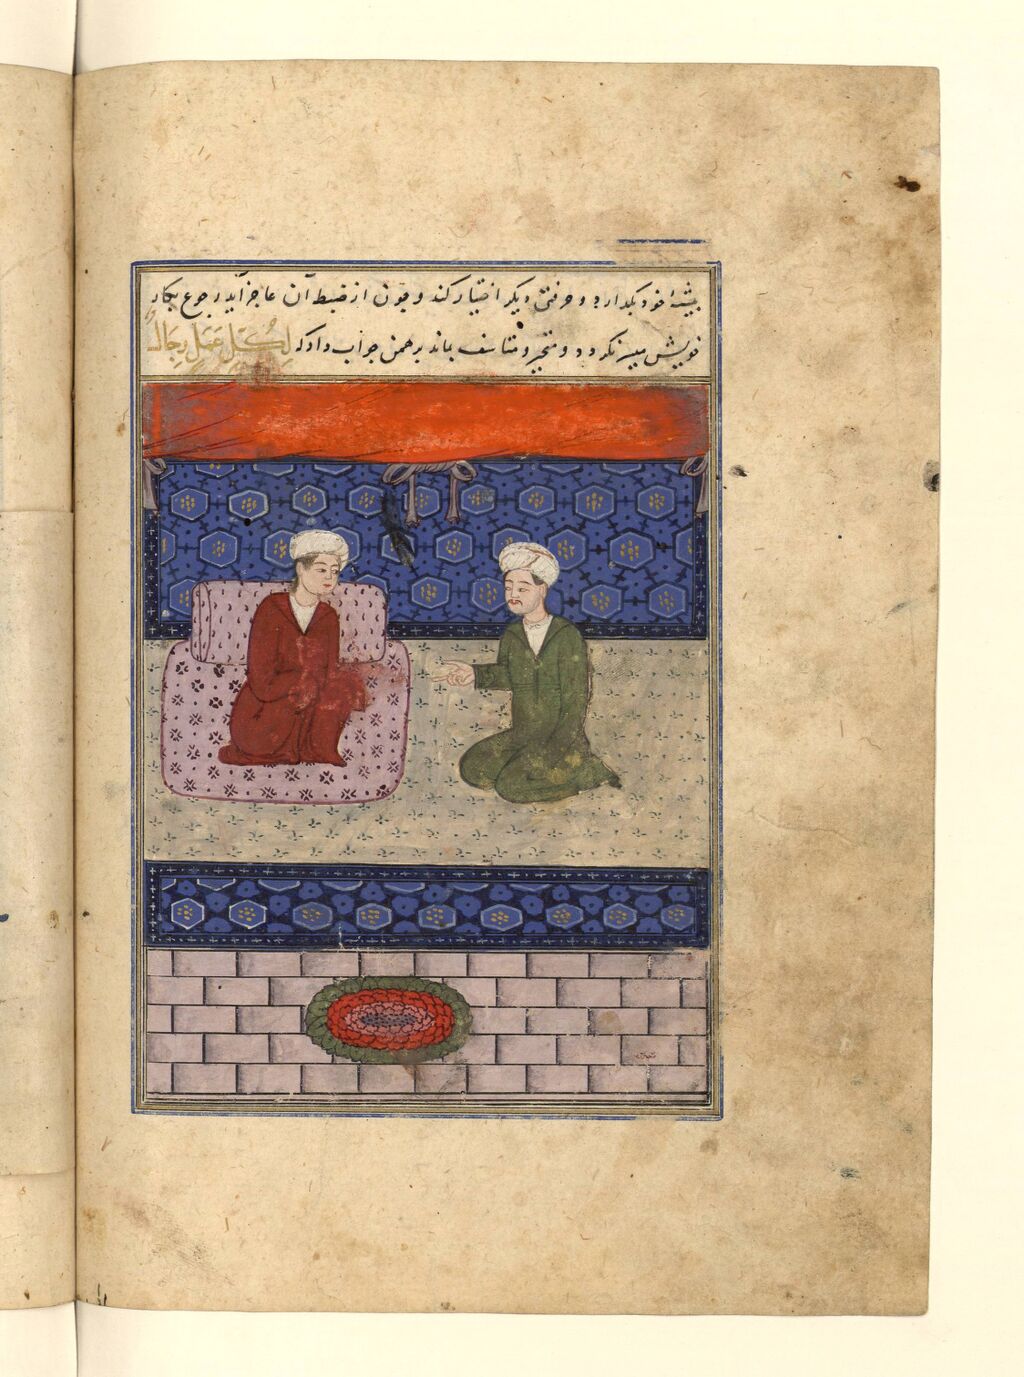 پیشهٔ خود بگذارد و حرفتی دیکر اختیار کند و چون از ضبط آن عاجز آید رجوع بکار
خویش میسر نکردد و متحیر و متاسف بماند برهمن جواب داد که لِکُلِّ عَمَلٍ رِجَالٌ